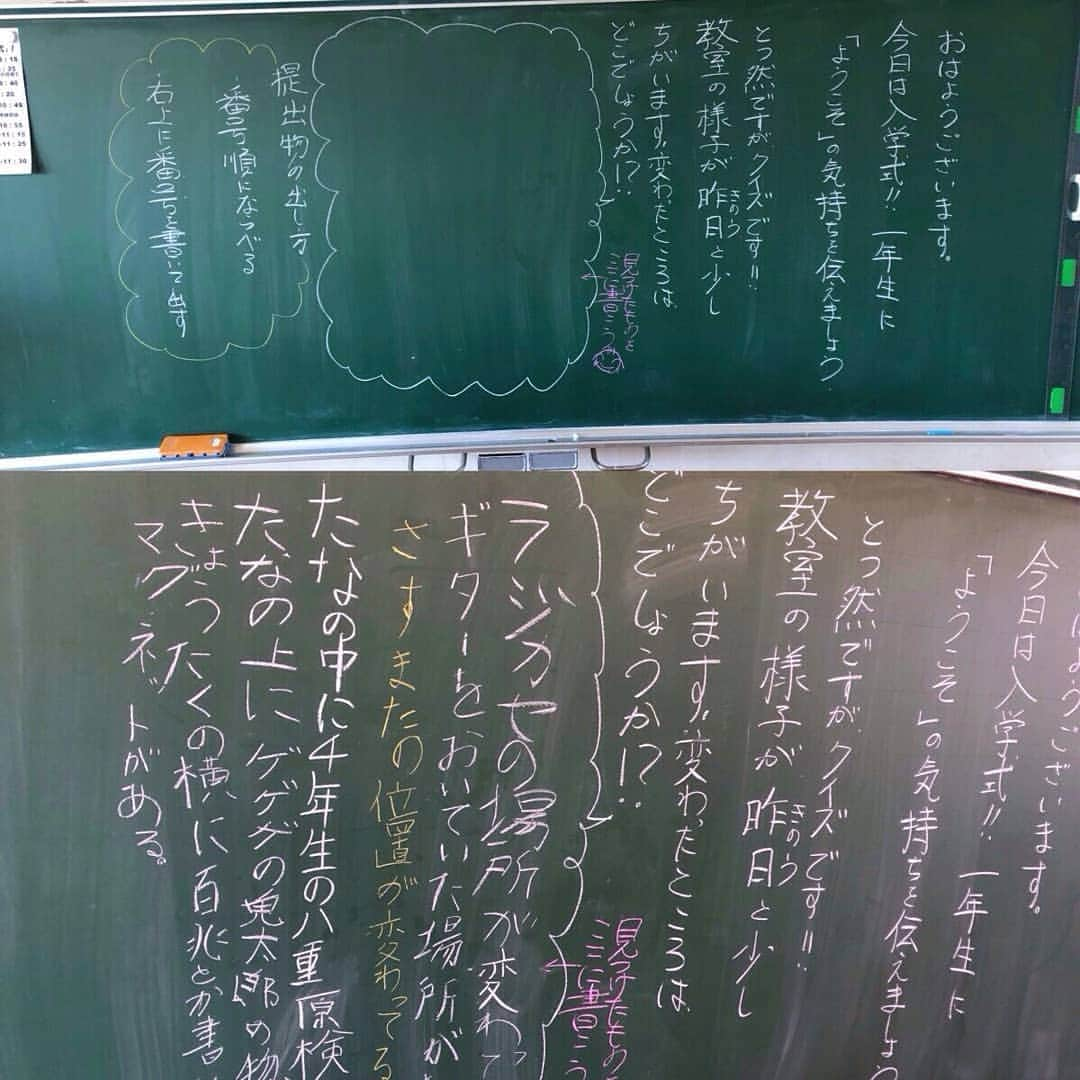 おはようございます。
今日は入学式!! 一年生に
「ようこそ」の気持ちを伝えましょう
とつ然ですがクイズです!!
教室の様子が昨日と少し
きのう
ちがいます。変わったところは、
どこでしょうか!?
見つけたものを
ここに書こう
提出物の出し方
番号順にならべる
右上に番号を書いて出す
はようございます。
今日は入学式!! 一年生に
「ようこそ」の気持ちを伝えましょう
とつ然ですがクイズです!!
教室の様子が昨日と少し
きのう
ちがいます。変わったところは、
どこでしょうか!?
見つけたもの
ここに書こう
の場所が変わって
ギターをおいていた場所が
さすまたの位置が変わってる
たなの中に4年生の八重原検
たなの上にゲゲゲの鬼太郎の物
きょうたくの横に百兆とか書
マグネットがある。